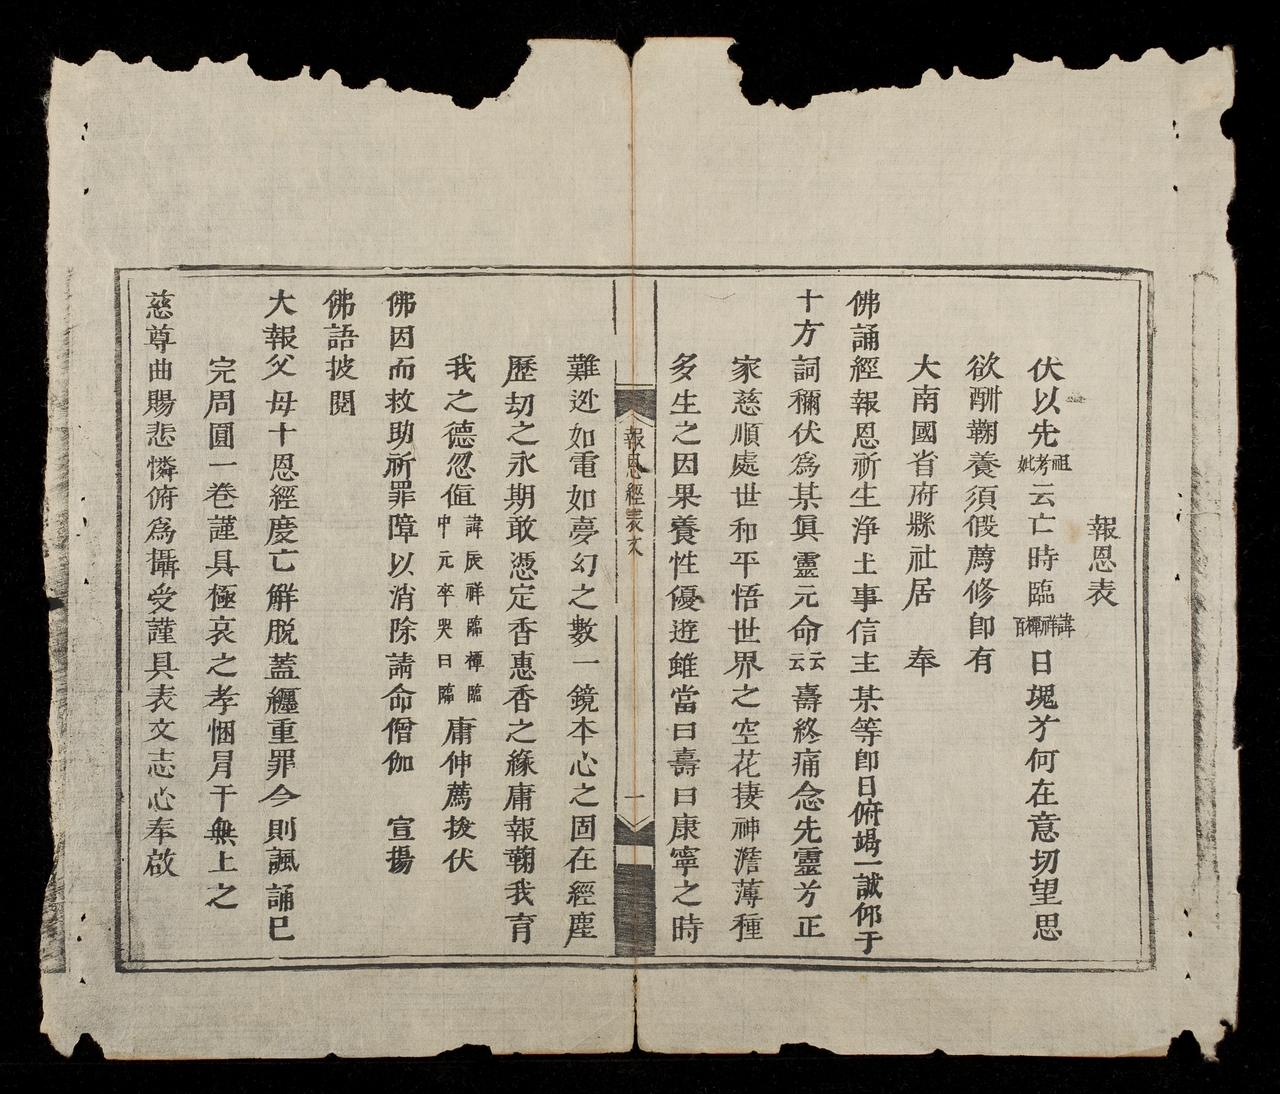 報恩表
伏以先祖考妣云亡時臨諱祥禫百日塊歹何在意切望思
欲酬鞠養須假薦修卽有
大南國省府縣社居　奉
佛誦經報恩祈生淨土事信主某等卽日俯竭一誠仰于
十方詞稱伏爲某眞靈元命云云壽終痛念先靈歹正
家慈順處世和平悟世界之空花捿神澹薄種
多生之因果養性優遊雖當曰壽曰康寧之時
報恩經表文
一
難迯如電如夢幻之數一鏡本心之固在經塵
歷刧之永期敢憑定香惠香之緣庸報鞠我育
我之德忽値諱辰祥臨禫臨中元卒哭日臨庸伸薦拔伏
佛因而救助祈罪障以消除請命僧伽　宣揚
佛語披閱
大報父母十恩經慶亡觧脫蓋纏重罪今則諷誦巳
完周圓一卷謹具極哀之孝悃冐干無上之
慈尊曲賜悲憐俯爲攝受謹具表文志心奉啟